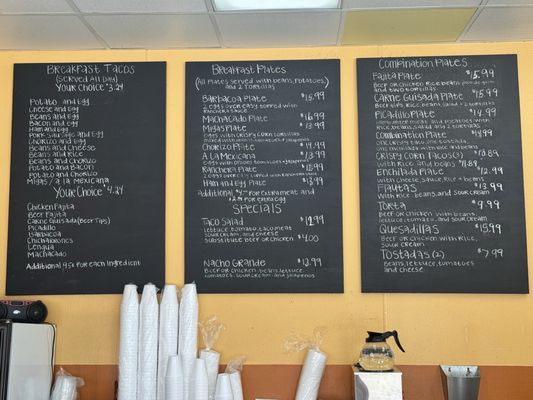 Breakfast Tacos
(Served All Day)
Your Choice $3.24
Potato and Egg
Cheese and Egg
Beans and Egg
Bacon and Egg
Ham and Egg
Pork Sausage and Egg
Chorizo and Egg
Beans and Cheese
Beans and Rice
Beans and Chorizo
Potato and Bacon
Potato and Chorizo
Migas / a la Mexicana
Your Choice $4.24
Chicken Fajita
Beef Fajita
Carne Guisada (Beef Tips)
Picadillo
Barbacoa
Chicharrones
Lengua
Machacado
Additional for each Ingredient
Breakfast Plates
(All plates served with beans, potatoes,
and 2 Tortillas
Barbacoa Plate $15.99
2 eggs over easy topped with
Ranchera sauce
Machacado Plate $16.99
Migas Plate $13.99
Eggs with crispy corn tortillas
Chorizo Plate $14.99
A La Mexicana $13.99
Rancheros Plate $13.99
Ham and Egg Plate $13.99
Additional for extra meat and
for extra egg
Specials
Taco Salad $12.99
lettuce, tomato, taco meat
sour cream, and cheese
Substitute beef or chicken $4.00
Nacho Grande $13.99
Beef or chicken, beans, lettuce,
tomatoes, sour cream, and jalapenos
Combination Plates
Fajita Plate $15.99
Beef or Chicken Rice Beans
and two tortillas
Carne Guisada Plate $15.99
Beef tips, Rice, beans, salad + 2 tortillas
Picadillo Plate $14.99
Rice, beans, salad, and 2 tortillas
Combination Plate $14.99
One crispy taco, one tostada,
Crispy Corn Tacos (3) $13.89
with Rice and beans
Enchilada Plate $12.99
with cheese sauce, Rice + beans
Flautas $13.99
with Rice, beans, and sour cream
Torta $9.99
Beef or Chicken with beans,
lettuce, tomato, and sour cream
Quesadillas $15.99
Beef or Chicken with Rice,
Sour Cream
Tostadas (2) $7.99
Beans, lettuce, tomatoes
and cheese